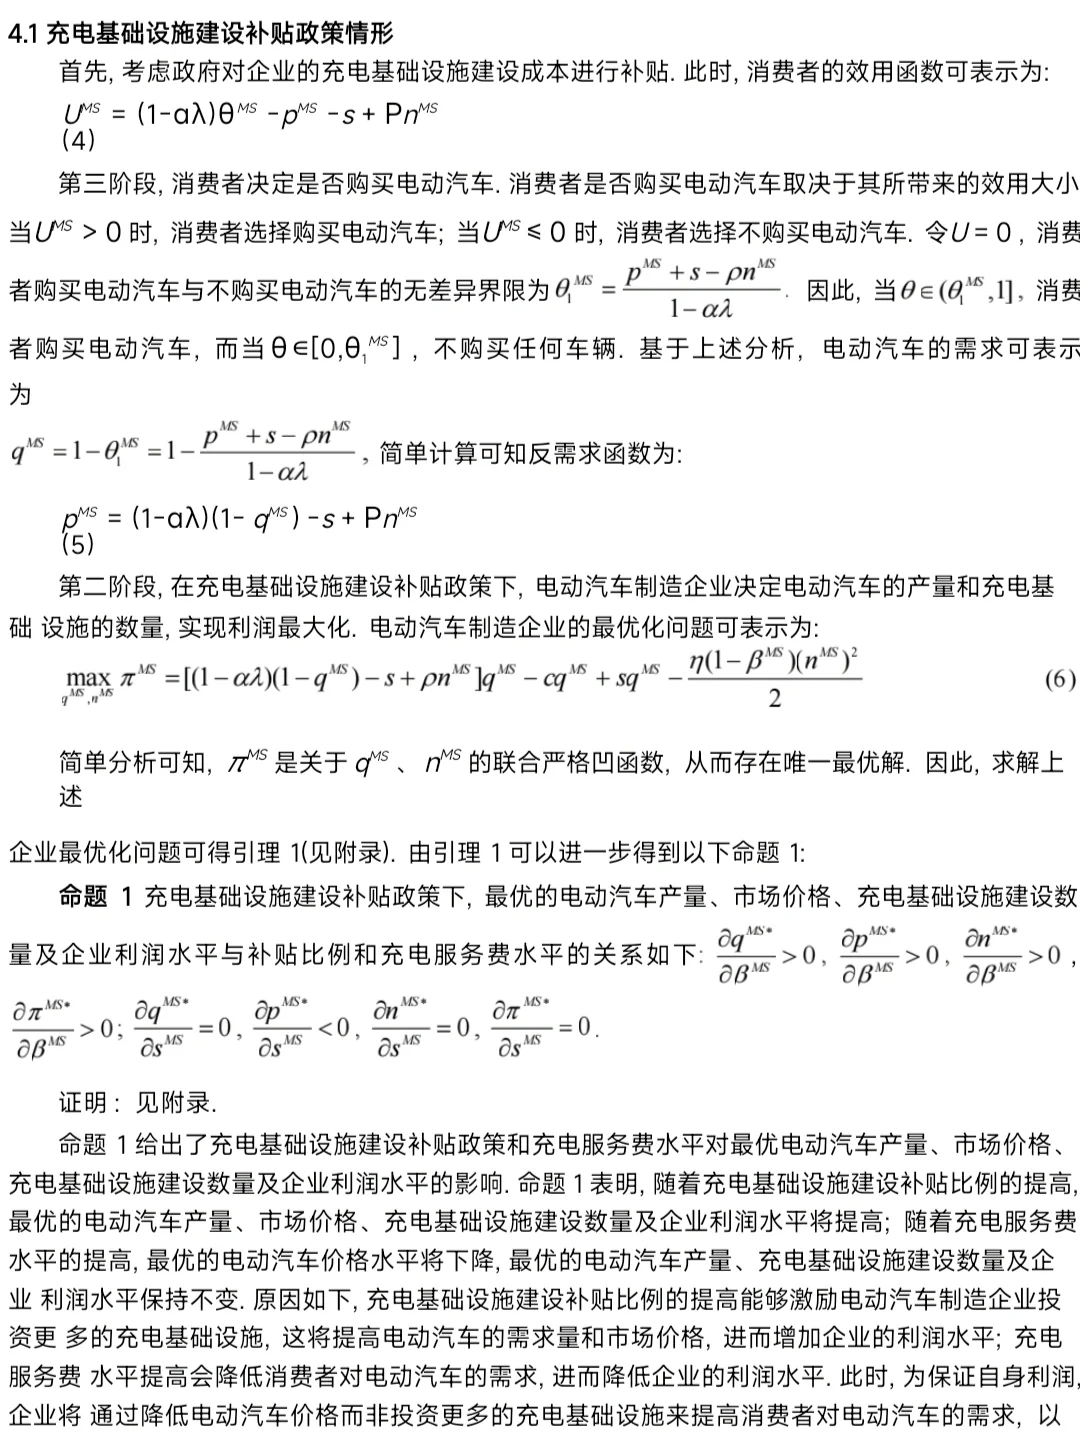 4.1 充电基础设施建设补贴政策情形
首先, 考虑政府对企业的充电基础设施建设成本进行补贴. 此时, 消费者的效用函数可表示为:
U^MS = (1-αλ)θ^MS -p^MS -s + Pn^MS
(4)
第三阶段, 消费者决定是否购买电动汽车. 消费者是否购买电动汽车取决于其所带来的效用大小
当U^MS > 0 时, 消费者选择购买电动汽车; 当U^MS ≤ 0 时, 消费者选择不购买电动汽车. 令U = 0 , 消费
者购买电动汽车与不购买电动汽车的无差异界限为 θ_1^MS = (p^MS + s − ρn^MS)/(1−αλ) . 因此, 当 θ∈(θ_1^MS,1], 消费
者购买电动汽车, 而当 θ∈[0,θ_1^MS] , 不购买任何车辆. 基于上述分析, 电动汽车的需求可表示
为
q^MS = 1−θ_1^MS = 1− (p^MS + s − ρn^MS)/(1−αλ) , 简单计算可知反需求函数为:
p^MS = (1-αλ)(1- q^MS) -s + Pn^MS
(5)
第二阶段, 在充电基础设施建设补贴政策下, 电动汽车制造企业决定电动汽车的产量和充电基
础 设施的数量, 实现利润最大化. 电动汽车制造企业的最优化问题可表示为:
max_{q^MS,n^MS} π^MS =[(1−αλ)(1−q^MS)−s+ρn^MS]q^MS − cq^MS + sq^MS − η(1−β^MS)(n^MS)^2/2 (6)
简单分析可知, π^MS 是关于 q^MS 、 n^MS 的联合严格凹函数, 从而存在唯一最优解. 因此, 求解上
述
企业最优化问题可得引理 1(见附录). 由引理 1 可以进一步得到以下命题 1:
命题 1 充电基础设施建设补贴政策下, 最优的电动汽车产量、市场价格、充电基础设施建设数
量及企业利润水平与补贴比例和充电服务费水平的关系如下: ∂q^MS*/∂β^MS >0, ∂p^MS*/∂β^MS >0, ∂n^MS*/∂β^MS >0 ,
∂π^MS*/∂β^MS >0; ∂q^MS*/∂s^MS =0, ∂p^MS*/∂s^MS <0, ∂n^MS*/∂s^MS =0, ∂π^MS*/∂s^MS =0.
证明: 见附录.
命题 1 给出了充电基础设施建设补贴政策和充电服务费水平对最优电动汽车产量、市场价格、
充电基础设施建设数量及企业利润水平的影响. 命题 1 表明, 随着充电基础设施建设补贴比例的提高,
最优的电动汽车产量、市场价格、充电基础设施建设数量及企业利润水平将提高; 随着充电服务费
水平的提高, 最优的电动汽车价格水平将下降, 最优的电动汽车产量、充电基础设施建设数量及企
业 利润水平保持不变. 原因如下, 充电基础设施建设补贴比例的提高能够激励电动汽车制造企业投
资更 多的充电基础设施, 这将提高电动汽车的需求量和市场价格, 进而增加企业的利润水平; 充电
服务费 水平提高会降低消费者对电动汽车的需求, 进而降低企业的利润水平. 此时, 为保证自身利润,
企业将 通过降低电动汽车价格而非投资更多的充电基础设施来提高消费者对电动汽车的需求, 以